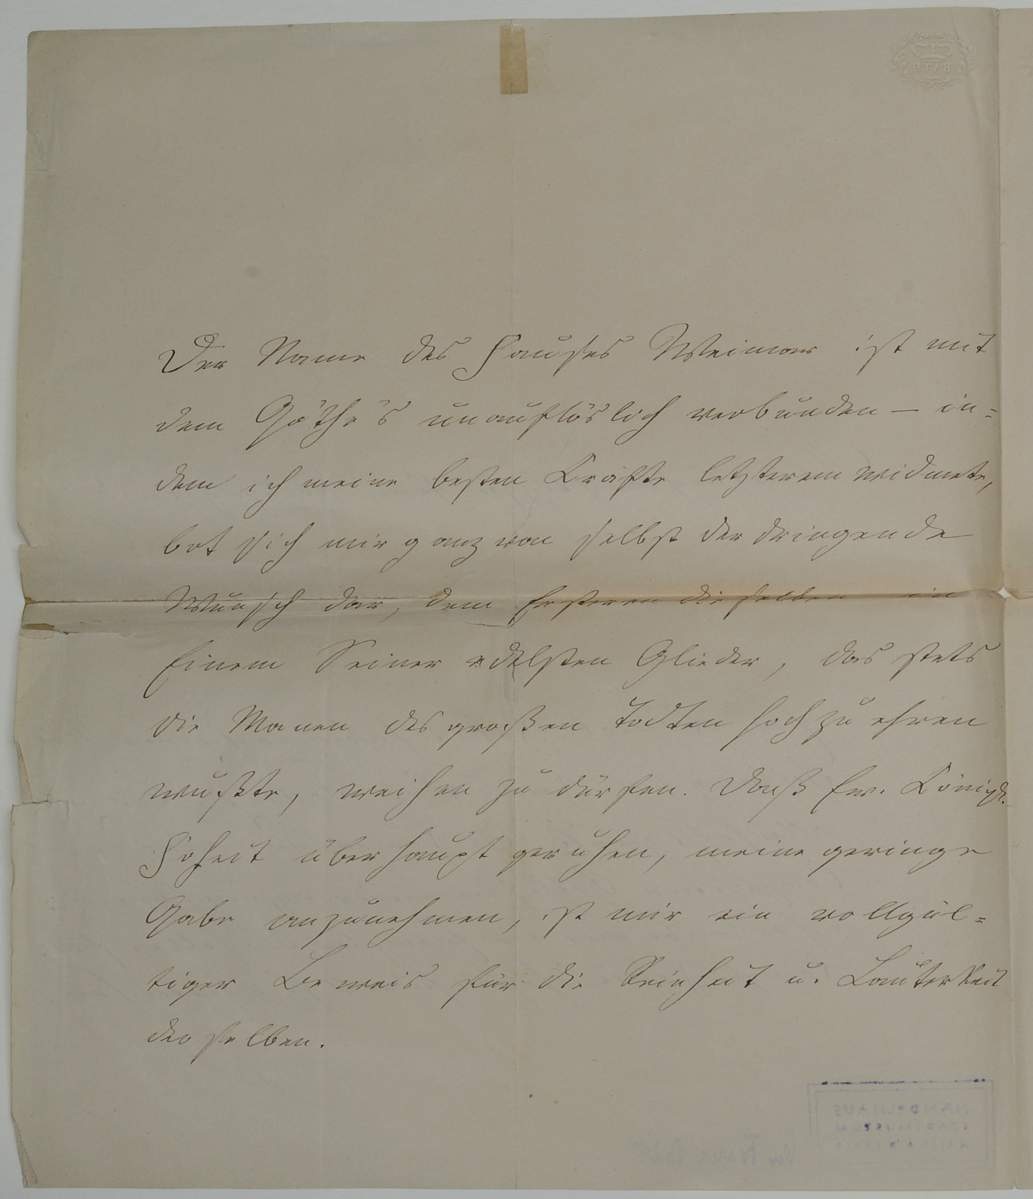 Der Name des Hauses Weimar ist mit
dem Göthe's unauflöslich verbunden – in=
dem ich meine besten Kräfte letzterem widmete,
bot sich mir ganz von selbst der dringende
Wunsch dar, dem Ersteren dieselben in
Einem Seiner edelsten Glieder, das stets
die Manen des großen Todten hoch zu ehren
wußte, weihen zu dürfen. Daß Ew. Königl.
Hoheit überhaupt geruhen, meine geringe
Gabe anzunehmen, ist mir ein vollgül=
tiger Beweis für die Reinheit u. Lauterkeit
derselben.